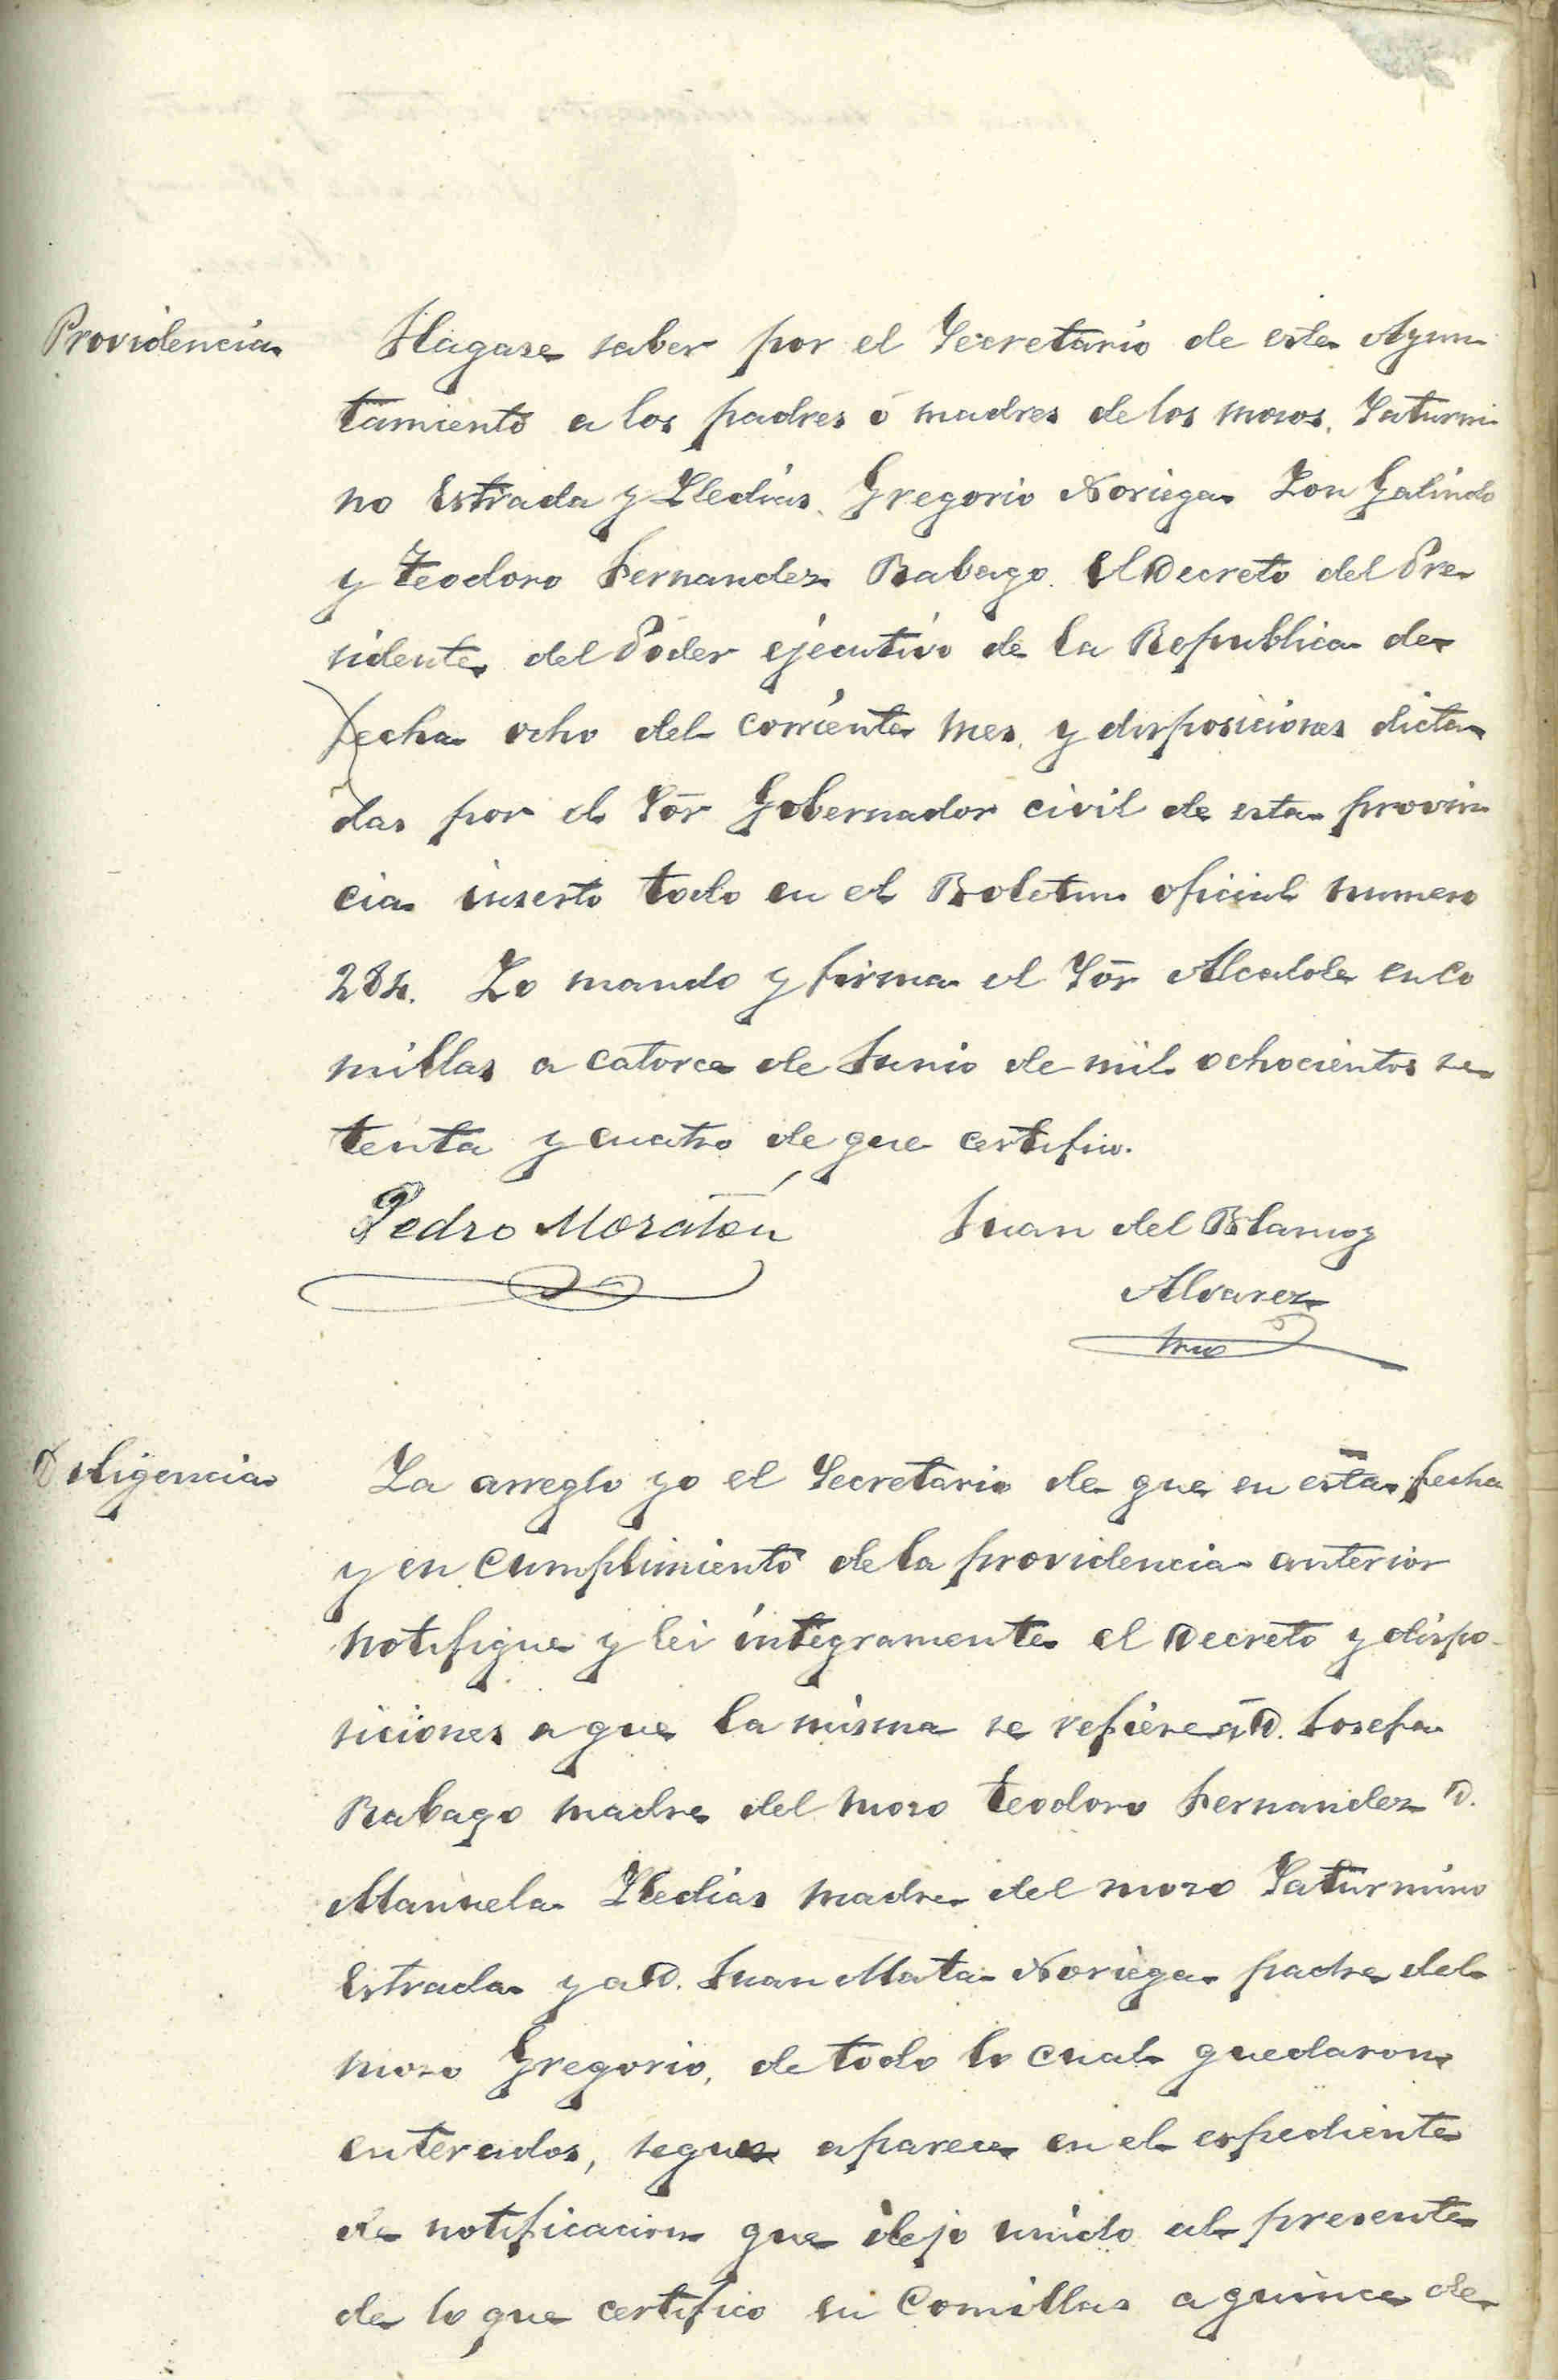 Providencia
Hagase saber por el Secretario de este Ayun
tamiento a los padres ó madres de los mozos, Saturni
no Estrada y Lledias, Gregorio Noriega Zon Galindo
y Teodoro Fernandez Rabago. El Decreto del Pre
sidente del Poder ejecutivo de la Republica de
fecha ocho del corriente mes, y disposiciones dicta
das por el Sor Gobernador civil de esta provin
cia inserto todo en el Boletin oficial numero
284. Lo mando y firma el Sor Alcalde en Co
millas a catorce de Junio de mil ochocientos se
tenta y cuatro de que certifico.
Pedro Moratón
Juan del Blanco y
Alvarez
Srio
Diligencia
La arreglo yo el Secretario de que en esta fecha
y en cumplimiento de la providencia anterior
notifique y lei integramente el Decreto y dispo
siciones a que la misma se refiere á D. Josefa
Rabago madre del mozo Teodoro Fernandez D.
Manuela Lledias madre del mozo Saturnino
Estrada y a D. Juan Mata Noriega padre del
mozo Gregorio, de todo lo cual quedaron
enterados, segun aparece en el espediente
de notificacion que dejo unido al presente
de lo que certifico en Comillas a quince de